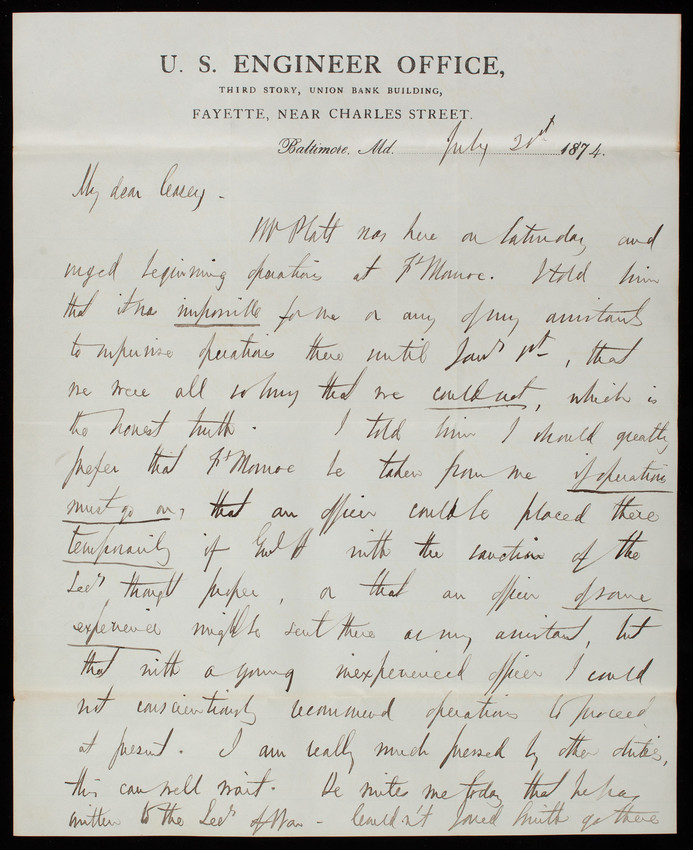 U. S. ENGINEER OFFICE,
THIRD STORY, UNION BANK BUILDING,
FAYETTE, NEAR CHARLES STREET.
Baltimore, Md. July 21st 1874.
My dear Casey -
Mr Platt was here on Saturday and
urged beginning operations at Ft Monroe. I told him
that it was impossible for me or any of my assistants
to supervise operations there until Jany 1st, that
we were all so busy that we could not, which is
the honest truth. I told him I should greatly
prefer that Ft Monroe be taken from me if operations
must go on, that an officer could be placed there
temporarily if Genl H with the sanction of the
Secy thought proper, or that an officer of some
experience might be sent there as my assistant, but
that with a young inexperienced officer I could
not conscientiously recommend operations to proceed
at present. I am really much pressed by other duties,
this can well wait. He writes me today that he has
written to the Secy of War - Couldn't Smith go there